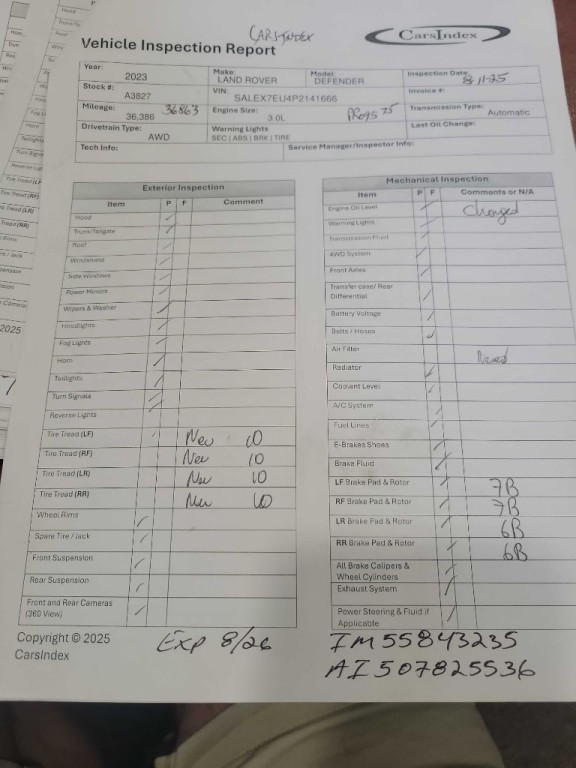 CARSINDEX
CarsIndex
Vehicle Inspection Report
Year: 2023
Make: LAND ROVER
Model DEFENDER
Inspection Date: 8-11-25
Stock #: A3827
VIN: SALEX7EU4P2141666
Invoice #:
Mileage: 36,386 36563
Engine Size: 3.0L
Transmission Type: Automatic
Drivetrain Type: AWD
Warning Lights SEC | ABS | BRK | TIRE
Last Oil Change:
Tech Info:
Service Manager/Inspector Info:
Exterior Inspection
Item P F Comment
Hood
Trunk/Tailgate
Roof
Windshield
Side Windows
Power Mirrors
Wipers & Washer
Headlights
Fog Lights
Horn
Taillights
Turn Signals
Reverse Lights
Tire Tread (LF) New 10
Tire Tread (RF) New 10
Tire Tread (LR) New 10
Tire Tread (RR) New 10
Wheel Rims
Spare Tire / Jack
Front Suspension
Rear Suspension
Front and Rear Cameras
(360 View)
Mechanical Inspection
Item P F Comments or N/A
Engine Oil Level Changed
Warning Lights
Transmission Fluid
4WD System
Front Axles
Transfer case/ Rear
Differential
Battery Voltage
Belts / Hoses
Air Filter
Radiator
Coolant Level
A/C System
Fuel Lines
E-Brakes Shoes
Brake Fluid
LF Brake Pad & Rotor 7B
RF Brake Pad & Rotor 7B
LR Brake Pad & Rotor 6B
RR Brake Pad & Rotor 6B
All Brake Calipers &
Wheel Cylinders
Exhaust System
Power Steering & Fluid if
Applicable
Copyright © 2025
CarsIndex
Exp 8/26
IM55843235
AI507825536